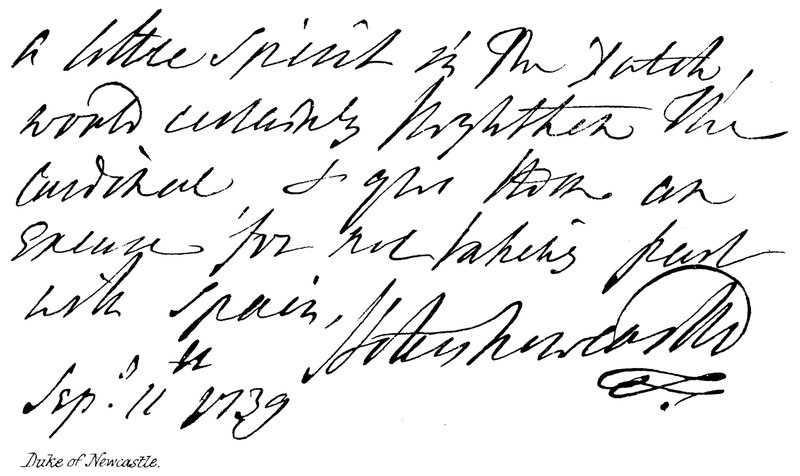 a little spirit in the Dutch,
would certainly frighten the
Cardinal, & give Him an
Excuse for not taking part
with Spain, Holles Newcastle
Sep.r 11th 1739
Duke of Newcastle.